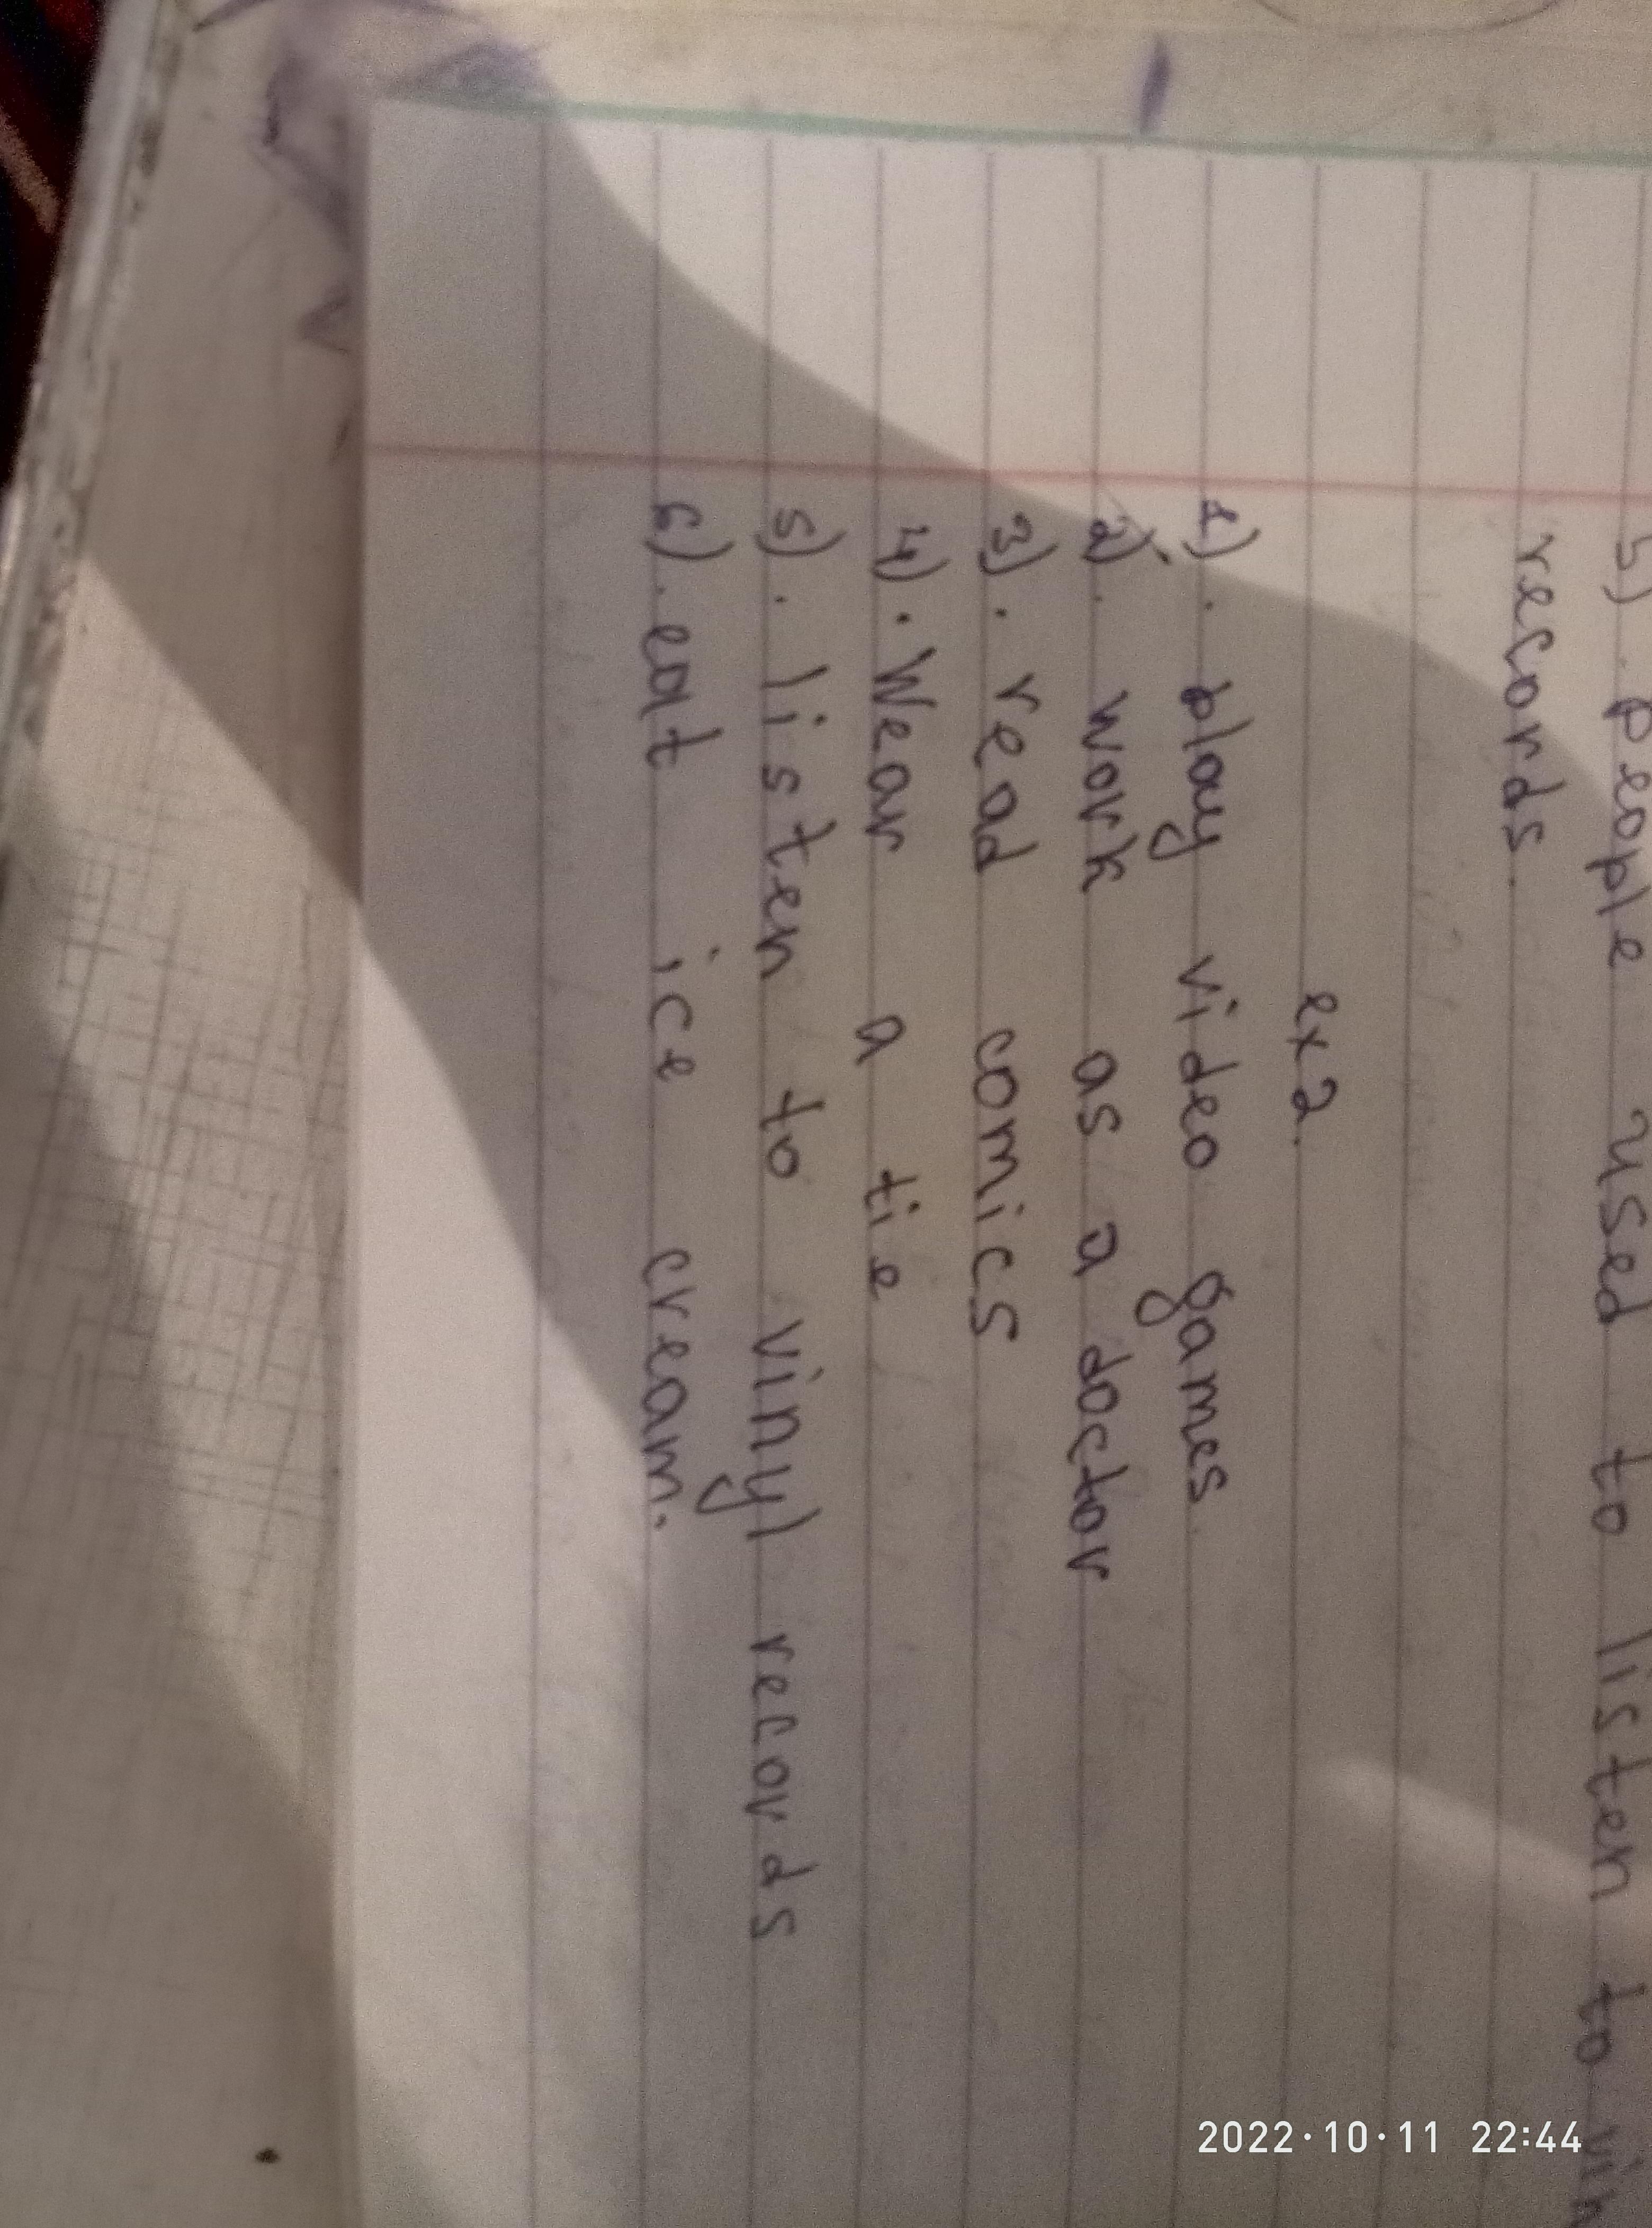 5). people used to listen to vin
records.
ex2.
1). play video games.
2). work as a doctor
3). read comics
4). Wear a tie
5). listen to vinyl records
6). eat ice cream.
2022·10·11 22:44